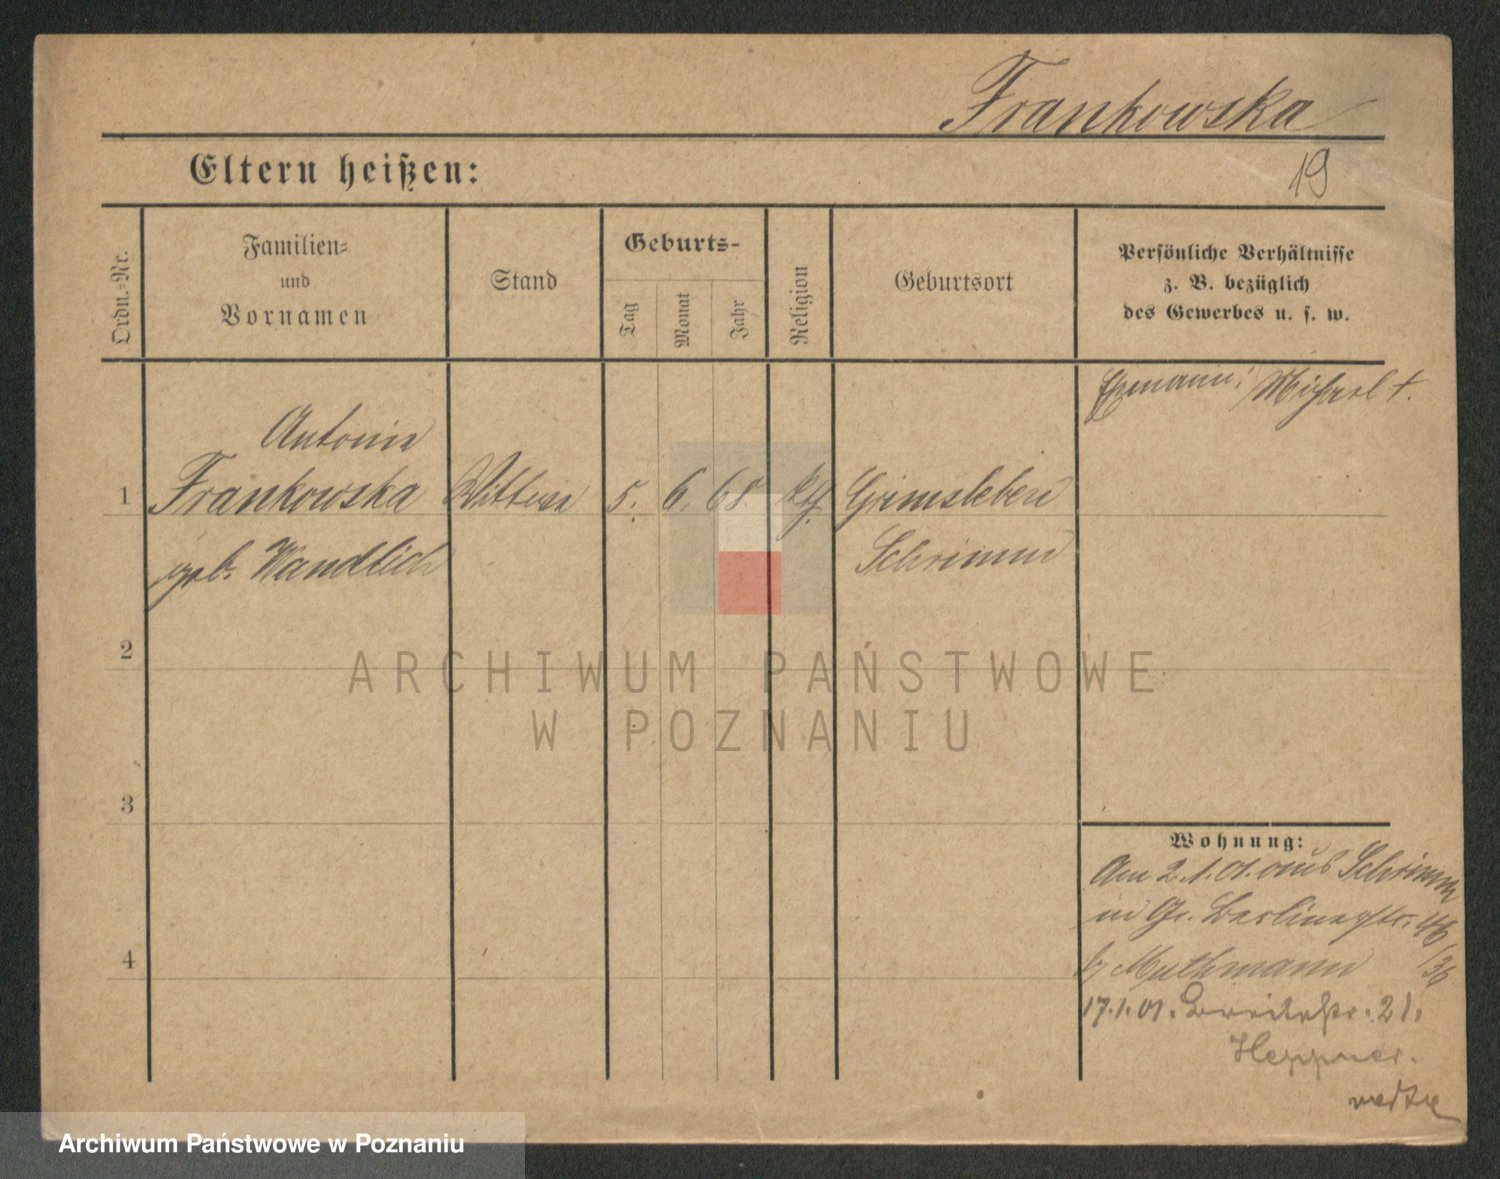 Frankowska
Eltern heißen:
19
Ordn.-Nr.
Familien-
und
Vornamen
Stand
Geburts-
Tag
Monat
Jahr
Religion
Geburtsort
Persönliche Verhältnisse
z. B. bezüglich
des Gewerbes u. s. w.
Ehemann: Michael †.
Antonie
1 Frankowska Wittwe 5. 6. 68. kth. Grimsleben
geb. Wandlich Schrimm
2
ARCHIWUM PAŃSTWOWE
W POZNANIU
3
Wohnung:
Am 2.1.01. aus Schrimm
in Gr. Berlinerstr. 46
/36
b/ Muthmann
4
17.1.01. Breitestr. 21.
Heppner.
Archiwum Państwowe w Poznaniu